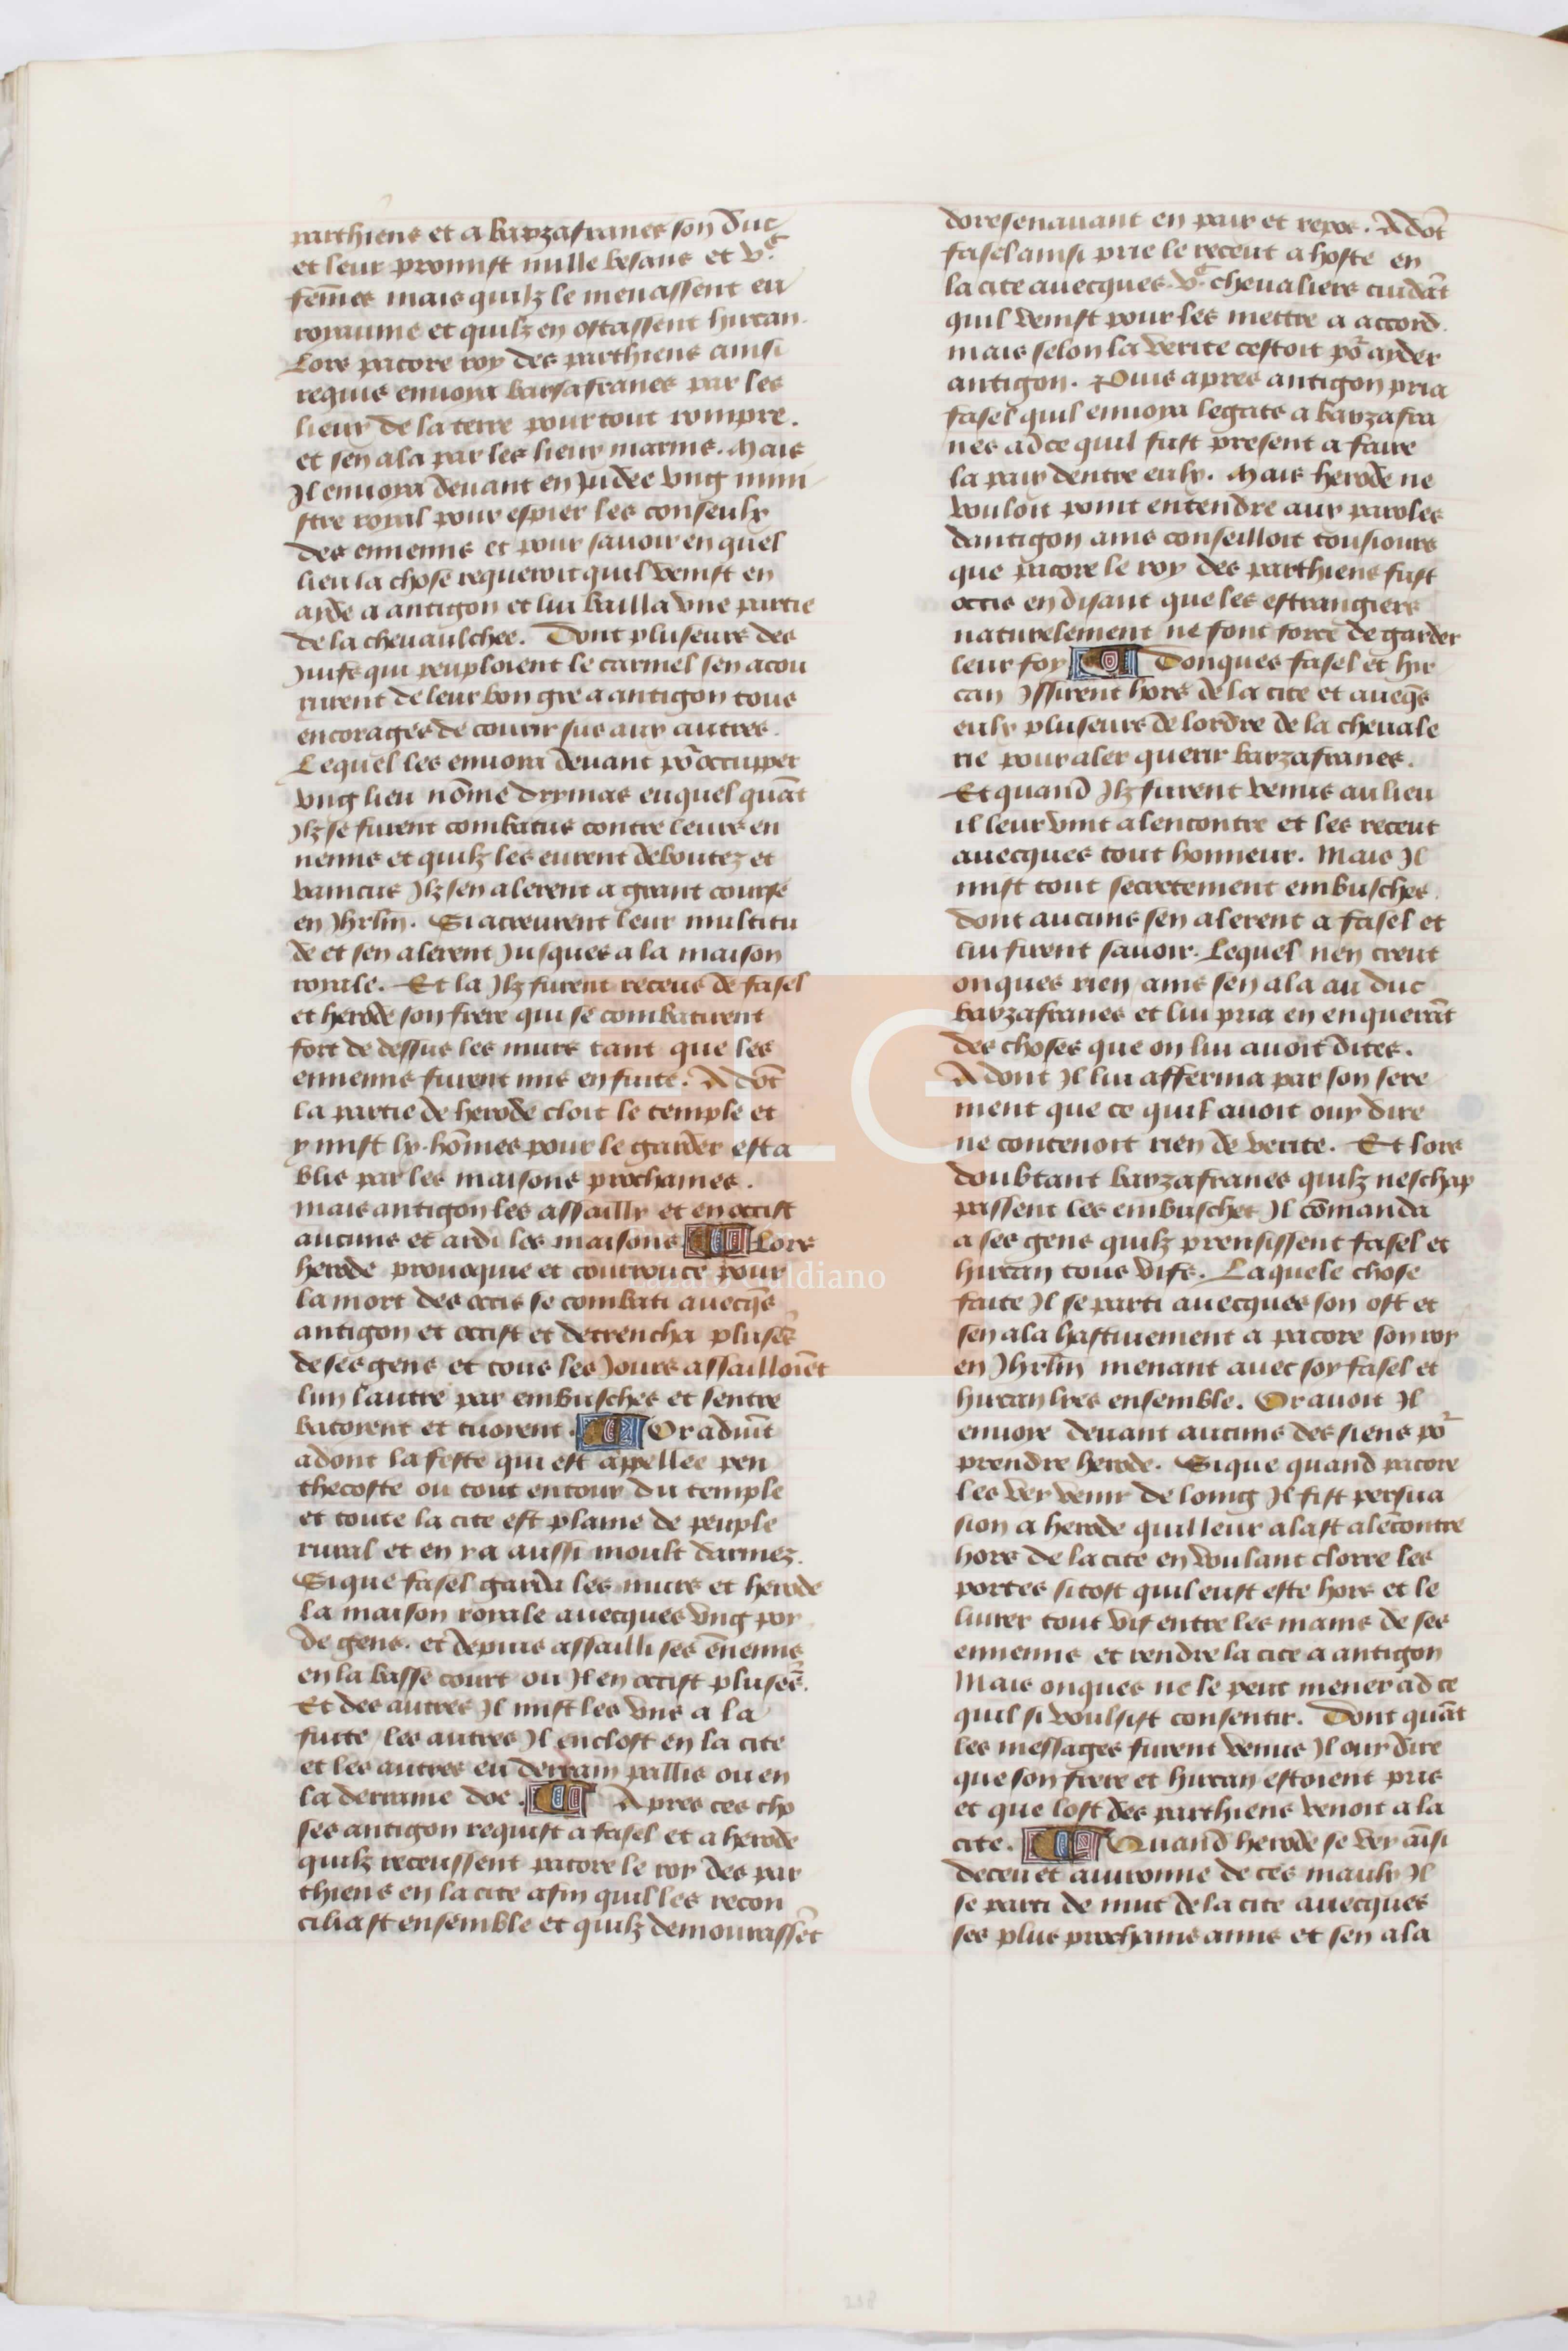 parthiens et a barzafranes son duc
et leur promist mille besans et v.c
fem̃es mais quilz le menassent eu
royaume et quilz en ostassent hircan.
Lors pacore roy des parthiens ainsi
requis enuoya barsafranes par les
lieux de la terre pour tout rompre.
et sen ala par les lieux marins. Mais
Il enuoya deuant en Judee vng mini
stre royal pour espier les conseulx
des ennemis et pour sauoir en quel
lieu la chose requeroit quil venist en
aide a antigon et lui bailla vne partie
de la cheuaulchee. Dont pluseurs des
Juifs qui peuploient le carmel sen acou
rurent de leur bon gre a antigon tous
encoragés de courir sus aux autres.
Lequel les enuoia deuant põ occupper
vng lieu nõme drymas euquel quãt
Ilz se furent combatus contre leurs en
nemis et quilz les eurent deboutez et
vaincus Ilz sen alerent a grant course
en Jhrlm̃. Si acreurent leur multitu
de et sen alerent Jusques a la maison
roiale. Et la Ilz furent receus de fasel
et herode son frere qui se combatirent
fort de dessus les murs tant que les
ennemis furent mis en fuite. A dõt
la partie de herode cloit le temple et
y mist lx. hõmes pour le garder esta
blis par les maisons prochaines.
mais antigon les assailly et en occist
aucuns et ardi les maisons Lors
herode prouoquie et courroucé pour
la mort des occis se combati auecq̃s
antigon et occist et detrencha pluse͂s
de ses gens et tous les Jours assailloiẽt
lun lautre par embusches et sentre
batorent et tuorent. Or aduĩt
adont la feste qui est appellee pen
thecoste ou tout entour du temple
et toute la cite est plaine de peuple
rural et en y a aussi moult darmez.
Sique fasel garda les murs et herode
la maison roiale auecques vng poy
de gens. et depuis assailli ses ẽnemis
en la basse court ou Il en occist plusẽs.
Et des autres Il mist les vns a la
fuite les autres Il enclost en la cite
et les autres eu derrain pallis ou en
la derraine doe. Apres ces cho
ses antigon requist a fasel et a herode
quilz receussent pacore le roy des par
thiens en la cite afin quil les recon
ciliast ensemble et quilz demourassẽt
doresenauant en paix et repos. A dõt
fasel ainsi prie le receut a hoste en
la cite auecques. v.c cheualiers cuidãt
quil venist pour les mettre a accord.
mais selon la verite cestoit põ aydier
antigon. Puis apres antigon pria
fasel quil enuoya legats a barzafra
nes ad ce quil fust present a faire
la paix dentre eulx. Mais herode ne
vouloit point entendre aux paroles
dantigon ains conseilloit tousiours
que pacore le roy des parthiens fust
occis en disant que les estrangiers
naturelement ne font force de garder
leur foy Donques fasel et hir
can Issirent hors de la cite et aueq̃s
eulx pluseurs de lordre de la cheuale
rie pour aler querir barzafranes.
Et quand Ilz furent venus au lieu
il leur vint alencontre et les receut
auecques tout honneur. Mais Il
mist tout secretement embusches.
dont aucuns sen alerent a fasel et
lui firent sauoir. Lequel nen creut
onques rien ains sen ala au duc
barzafranes et lui pria en enquerãt
des choses que on lui auoit dites.
A dont Il lui afferma par son sere
ment que ce quil auoit ouy dire
ne contenoit rien de verite. Et lors
doubtant barzafranes quilz neschap
passent les embusches Il cõmanda
a ses gens quilz prensissent fasel et
hircan tous vifs. Laquele chose
faite Il se parti auecques son ost et
sen ala hastiuement a pacore son roy
en Jhrlm̃ menant auec soy fasel et
hircan lies ensemble. Or auoit Il
enuoie deuant aucuns des siens põ
prendre herode. Sique quand pacore
les vey venir de loing Il fist persua
sion a herode quil leur alast alẽcontre
hors de la cite en voulant clorre les
portes sitost quil eust este hors et le
liurer tout vif entre les mains de ses
ennemis et rendre la cite a antigon
Mais onques ne le peut mener ad ce
quil si voulsist consentir. Dont quãt
les messages furent venus Il ouy dire
que son frere et hircan estoient pris
et que lost des parthiens venoit a la
cite. Quand herode se vey aĩsi
deceu et auironne de ces maulx Il
se parti de nuit de la cite auecques
ses plus prochains amis et sen ala
Lázaro Galdiano
LG
218